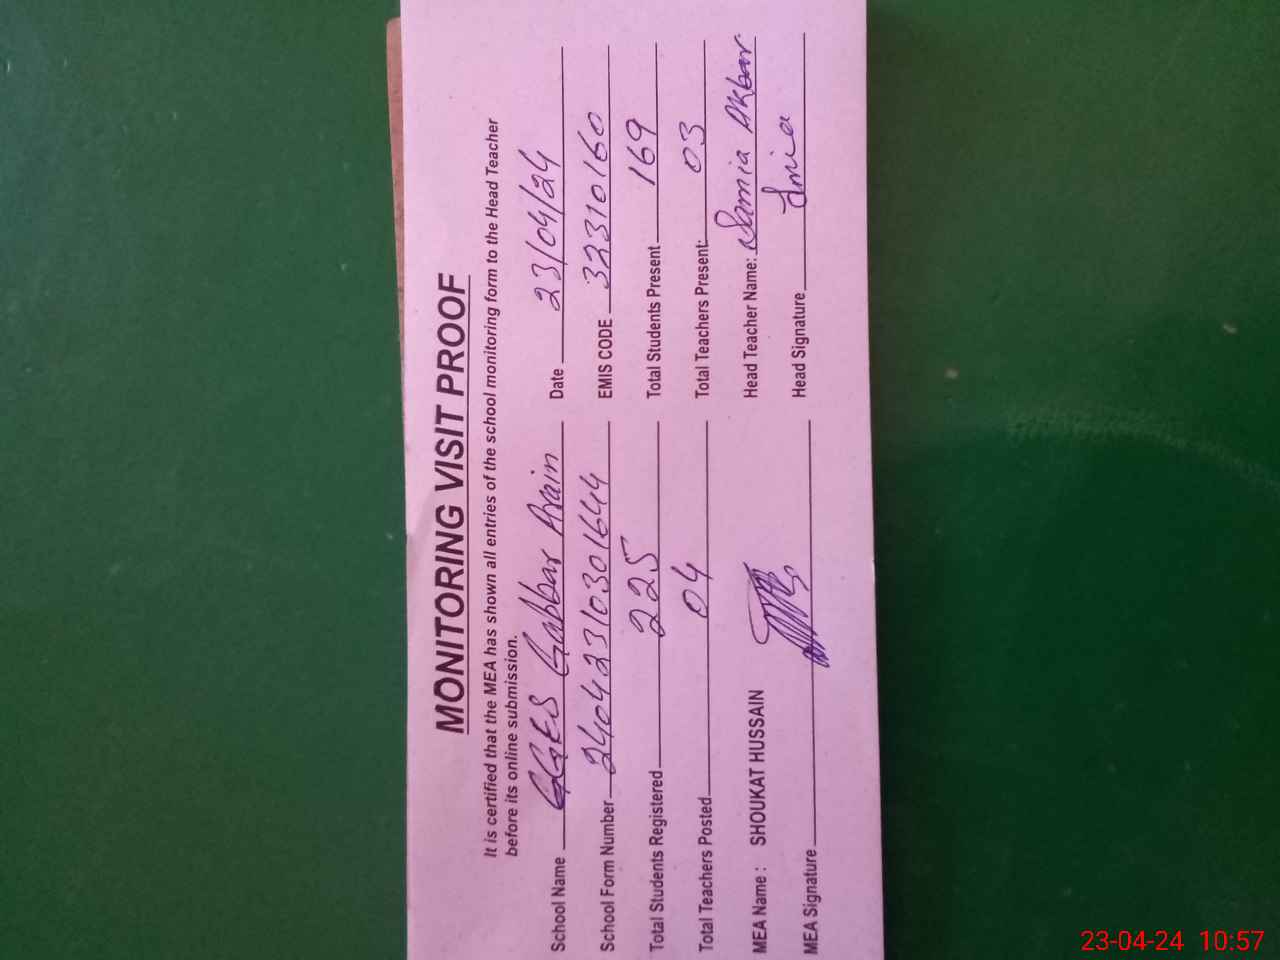 MONITORING VISIT PROOF
It is certified that the MEA has shown all entries of the school monitoring form to the Head Teacher
before its online submission.
School Name GGES Gabbar Arain Date 23/04/24
School Form Number 24042310301644 EMIS CODE 32310160
Total Students Registered 225 Total Students Present 169
Total Teachers Posted 04 Total Teachers Present: 03
MEA Name : SHOUKAT HUSSAIN Head Teacher Name: Samia Akbar
MEA Signature Head Signature
23-04-24 10:57